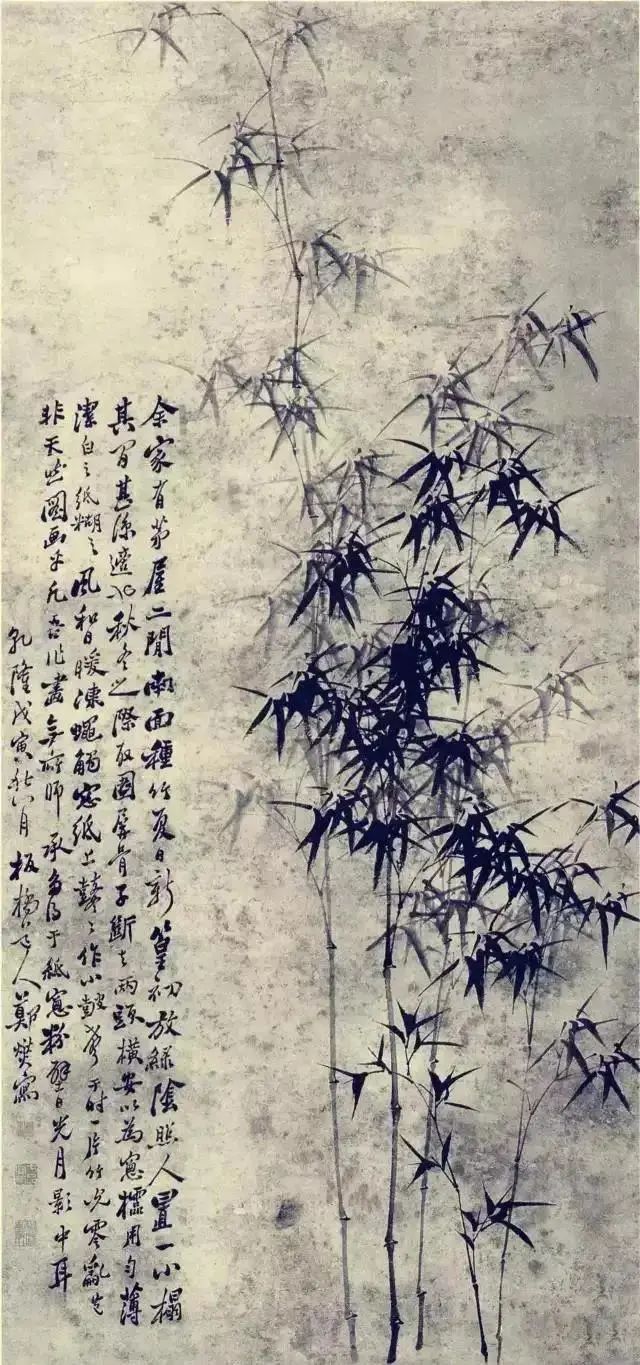 余家有茅屋二間南面種竹夏日新篁初放綠陰照人置一小榻
其間甚涼適也秋冬之際取圍屏骨子斷去兩頭橫安以為窗櫺用勻薄
潔白之紙糊之風和日暖凍蠅觸窗紙上鼕々作小鼓聲于時一片竹零亂豈
非天然圖畫乎凡吾作畫無所師承多得于紙窗粉壁日光月影中耳
乾隆戊寅秋八月板橋道人鄭燮寫